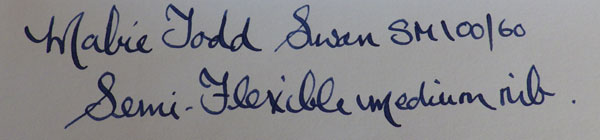 Mabie Todd Swan SM100/60
Semi-Flexible medium nib.